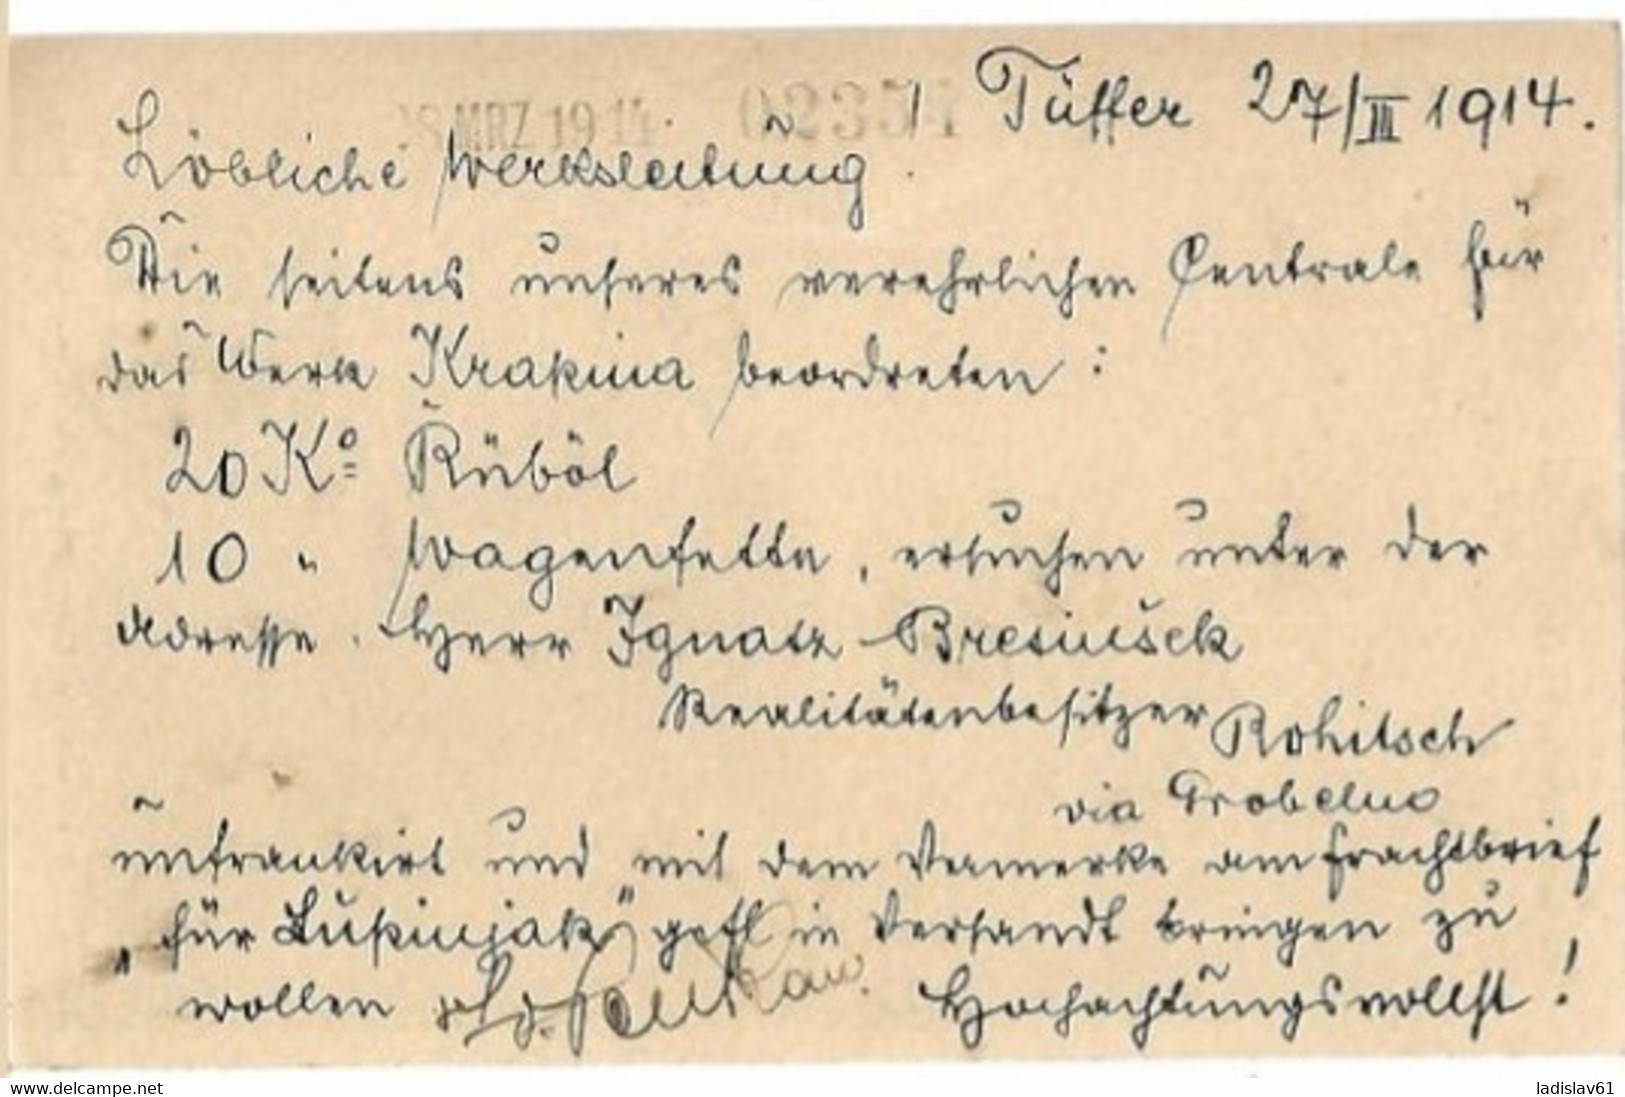 28 MRZ 1914 02354
Tüffer 27/III 1914.
Löbliche Werksleitung!
Die seitens unseres verehrlichen Centrale für
das Werk Krapina beorderten:
20 Ko Rüböl
10 " Wagenfette, ersuchen unter der
Adresse. Herr Ignatz Bresinšek
Realitätenbesitzer Rohitsch
via Grobelno
unfrankirt und mit dem Vermerke am Frachtbrief
"für Lupinjak" gefl in Versandt bringen zu
wollen Hochachtungsvollst!
www.delcampe.net
ladislav61